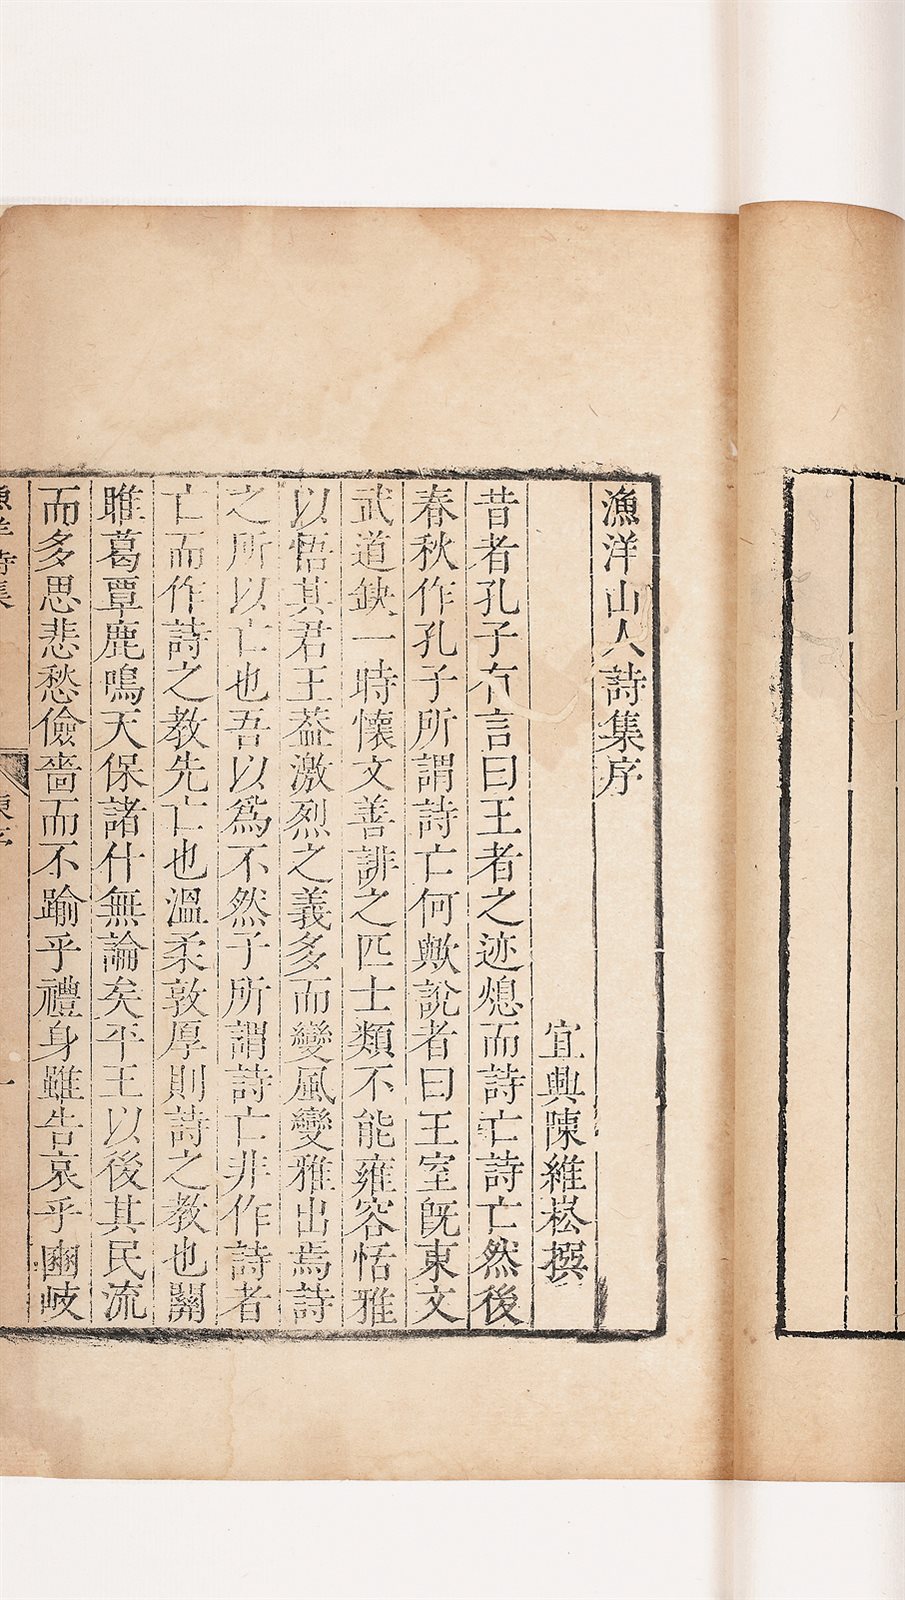 漁洋山人詩集序
宜興陳維崧撰
昔者孔子有言曰王者之迹熄而詩亡詩亡然後
春秋作孔子所謂詩亡何歟說者曰王室旣東文
武道缺一時懷文善誹之匹士類不能雍容恬雅
以悟其君王葢激烈之義多而變風變雅出焉詩
之所以亡也吾以爲不然子所謂詩亡非作詩者
亡而作詩之教先亡也溫柔敦厚則詩之教也關
雎葛覃鹿鳴天保諸什無論矣平王以後其民流
而多思悲愁儉嗇而不踰乎禮身雖告哀乎豳岐
漁洋詩集
陳序
一